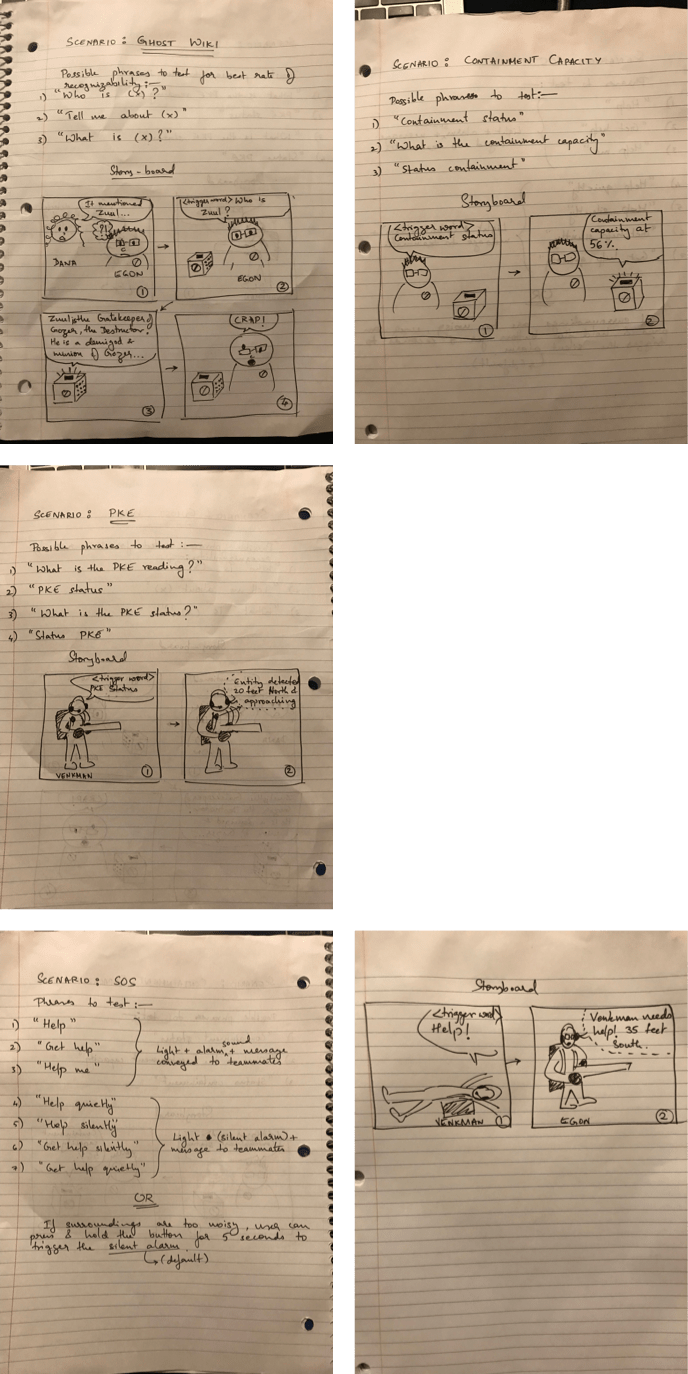 SCENARIO: GHOST WIKI
Possible phrases to test for best rate of
recognizability:—
1) "Who is (x)?"
2) "Tell me about (x)"
3) "What is (x)?"
Story-board
It mentioned
Zuul...
?!
DANA
EGON
1
<trigger word> Who is
Zuul?
EGON
2
Zuul is the Gatekeeper of
Gozer, the Destructor.
He is a demigod &
minion of Gozer...
3
CRAP!
4
SCENARIO: CONTAINMENT CAPACITY
Possible phrases to test:—
1) "Containment status"
2) "What is the containment capacity"
3) "Status containment"
Storyboard
<trigger word>
Containment status
1
Containment
capacity at
56%.
2
SCENARIO: PKE
Possible phrases to test:—
1) "What is the PKE reading?"
2) "PKE status"
3) "What is the PKE status?"
4) "Status PKE"
Storyboard
<trigger word>
PKE Status
VENKMAN
1
Entity detected
20 feet North &
approaching
2
SCENARIO: SOS
Phrases to test:—
1) "Help"
2) "Get help"
3) "Help me"
Light + alarm sound + message
conveyed to teammates
4) "Help quietly"
5) "Help silently"
6) "Get help silently"
7) "Get help quietly"
Light (silent alarm) +
message to teammates
OR
If surroundings are too noisy, user can
press & hold the button for 5 seconds to
trigger the silent alarm.
(default)
Storyboard
<trigger word>
Help!
VENKMAN
1
Venkman needs
help! 35 feet
South.
EGON
2